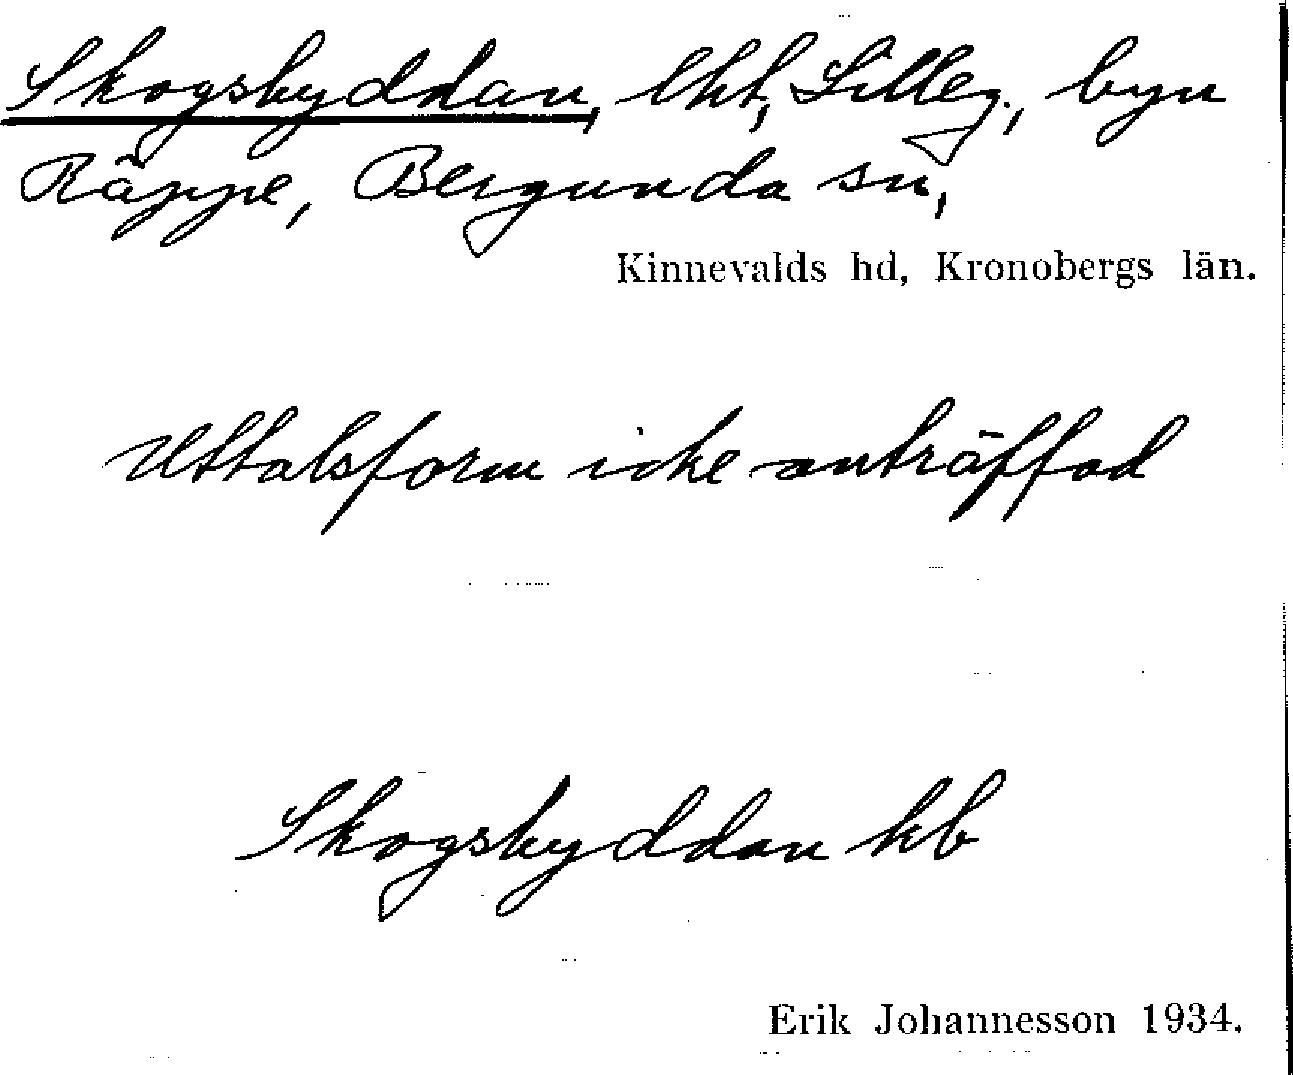 Skogsbyddan, lht, Lilleg., byn
Räppe, Bergunda sn,
Kinnevalds hd, Kronobergs län.
Uttalsform icke anträffad
Skogsbyddan kb
Erik Johannesson 1934.